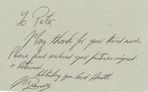 To Peter
Many thanks for your kind words.
Please find enclosed your pictures signed
& returned.
Wishing you Good Health